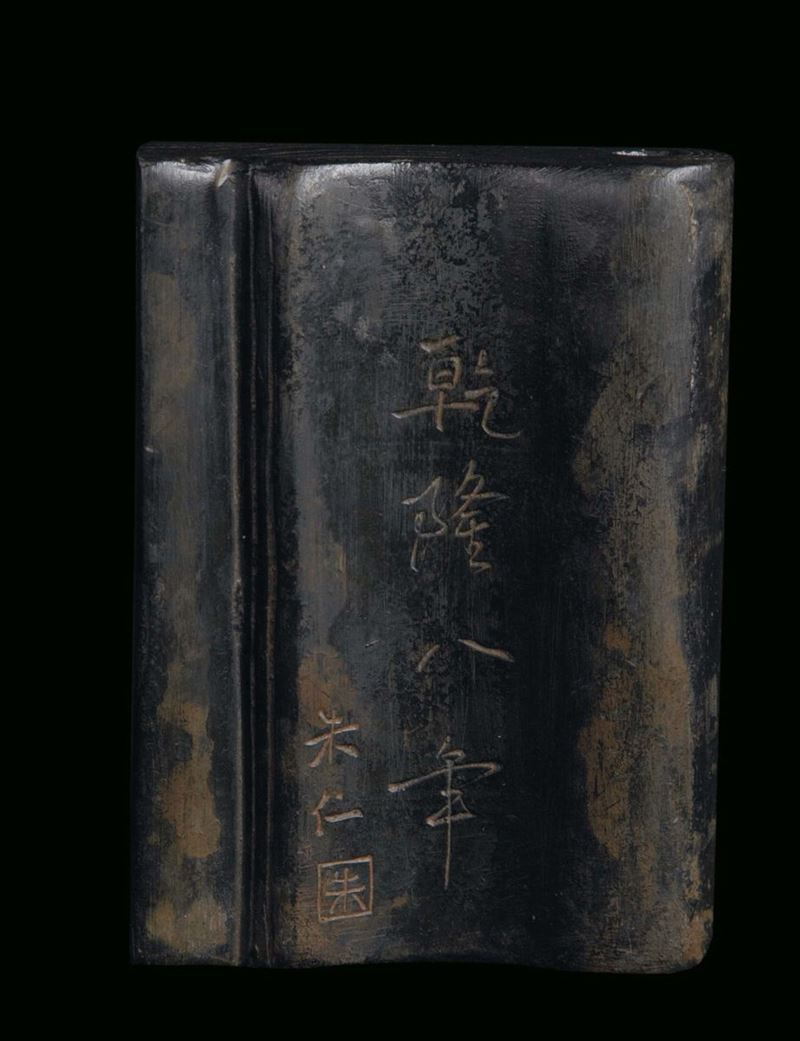 乾隆八年
朱仁
朱